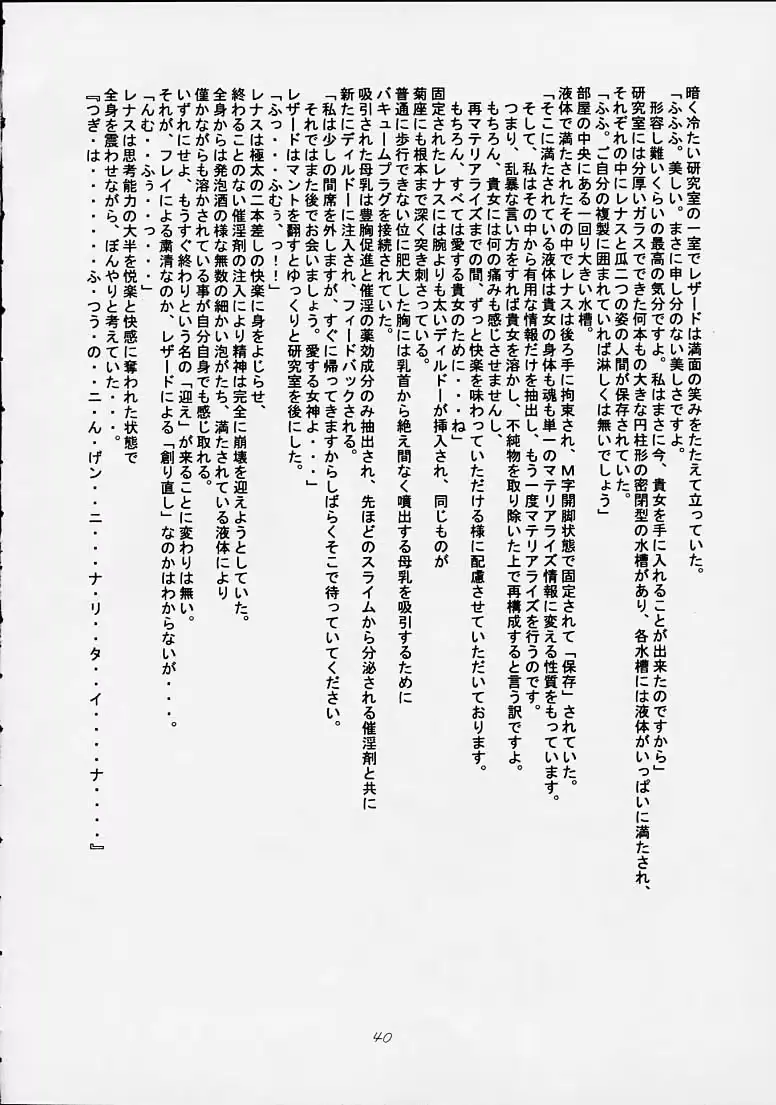 暗く冷たい研究室の一室でレザードは満面の笑みをたたえて立っていた。
「ふふふ。美しい。まさに申し分のない美しさですよ。
形容し難いくらいの最高の気分ですよ。私はまさに今、貴女を手に入れることが出来たのですから」
研究室には分厚いガラスでできた何本もの大きな円柱形の密閉型の水槽があり、各水槽には液体がいっぱいに満たされ、
それぞれの中にレナスと瓜二つの姿の人間が保存されていた。
「ふふ。ご自分の複製に囲まれていれば淋しくは無いでしょう」
部屋の中央にある一回り大きい水槽。
液体で満たされたその中でレナスは後ろ手に拘束され、M字開脚状態で固定されて「保存」されていた。
「そこに満たされている液体は貴女の身体も魂も単一のマテリアライズ情報に変える性質をもっています。
そして、私はその中から有用な情報だけを抽出し、もう一度マテリアライズを行うのです。
つまり、乱暴な言い方をすれば貴女を溶かし、不純物を取り除いた上で再構成すると言う訳ですよ。
もちろん、貴女には何の痛みも感じさせませんし、
再マテリアライズまでの間、ずっと快楽を味わっていただける様に配慮させていただいております。
もちろん、すべては愛する貴女のために・・・ね」
固定されたレナスには腕よりも太いディルドーが挿入され、同じものが
菊座にも根本まで深く突き刺さっている。
普通に歩行できない位に肥大した胸には乳首から絶え間なく噴出する母乳を吸引するために
バキュームプラグを接続されていた。
吸引された母乳は豊胸促進と催淫の薬効成分のみ抽出され、先ほどのスライムから分泌される催淫剤と共に
新たにディルドーに注入され、フィードバックされる。
「私は少しの間席を外しますが、すぐに帰ってきますからしばらくそこで待っていてください。
それではまた後でお会いましょう。愛する女神よ・・・」
レザードはマントを翻すとゆっくりと研究室を後にした。
「ふっ・・・ふむぅ、っ！！」
レナスは極太の二本差しの快楽に身をよじらせ、
終わることのない催淫剤の注入により精神は完全に崩壊を迎えようとしていた。
全身からは発泡酒の様な無数の細かい泡がたち、満たされている液体により
僅かながらも溶かされている事が自分自身でも感じ取れる。
いずれにせよ、もうすぐ終わりという名の「迎え」が来ることに変わりは無い。
それが、フレイによる粛清なのか、レザードによる「創り直し」なのかはわからないが・・・。
「んむ・・ふぅ・・っ・・・」
レナスは思考能力の大半を悦楽と快感に奪われた状態で
全身を震わせながら、ぼんやりと考えていた・・・。
『つぎ・は・・・・・・ふ・つう・の・・ニ・ん・げン・・ニ・・・ナ・リ・・タ・・イ・・・・ナ・・・・』
40